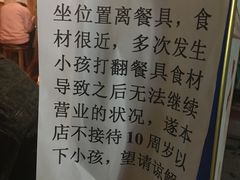 坐位置离餐具，食
材很近，多次发生
小孩打翻餐具食材
导致之后无法继续
营业的状况，遂本
店不接待10周岁以
下小孩，望请谅解